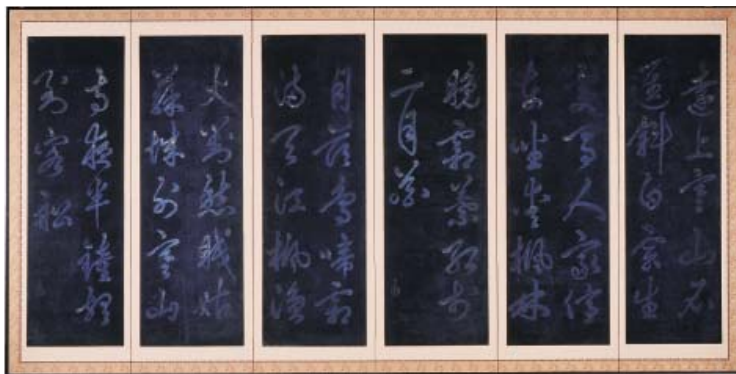 遠上寒山石
逕斜白雲生
處有人家停
車坐愛楓林
晚霜葉紅於
二月花
月落烏啼霜
滿天江楓漁
火對愁眠姑
蘇城外寒山
寺夜半鐘聲
到客船